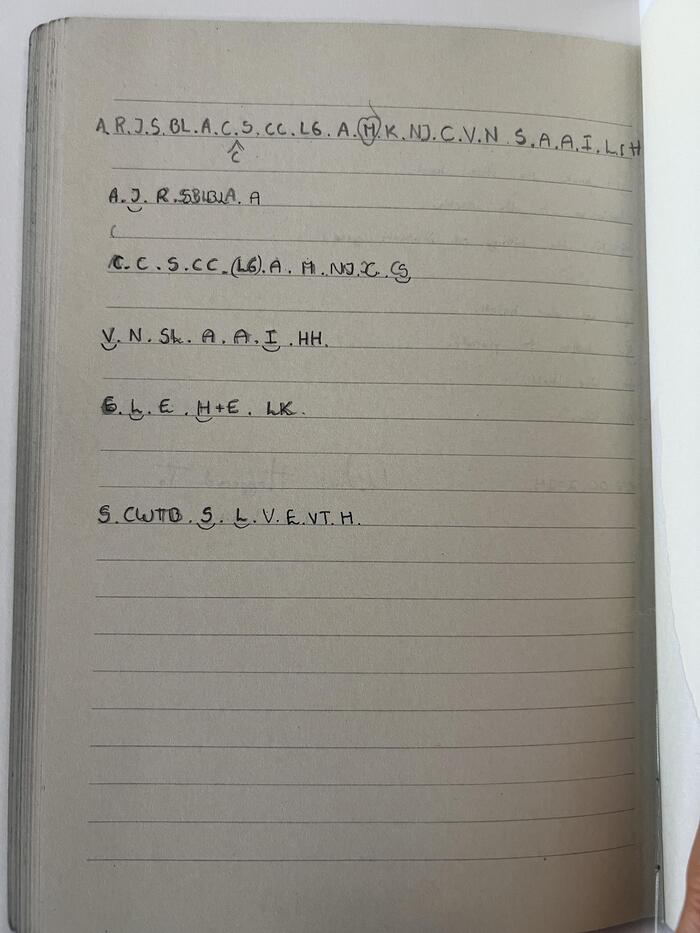 A.R.J.S.BL.A.C.S.CC.LG.A.M.K.NJ.C.V.N.S.A.A.I.L.
C
A.J.R.SBLBLA.A
(
C.C.S.CC.(LG).A.M.NJ.C.CS
V.N.SL.A.A.I.HH.
G.L.E.H+E.LK.
S.CWTTB.S.L.V.E.VT.H.